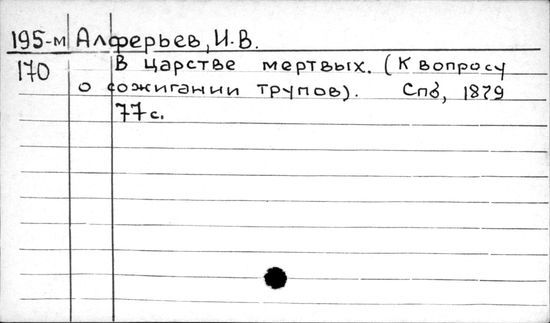 195-м Алферьев, И.В.
170 В царстве мертвых. (К вопросу
о сожигании трупов). Спб, 1879
77 с.